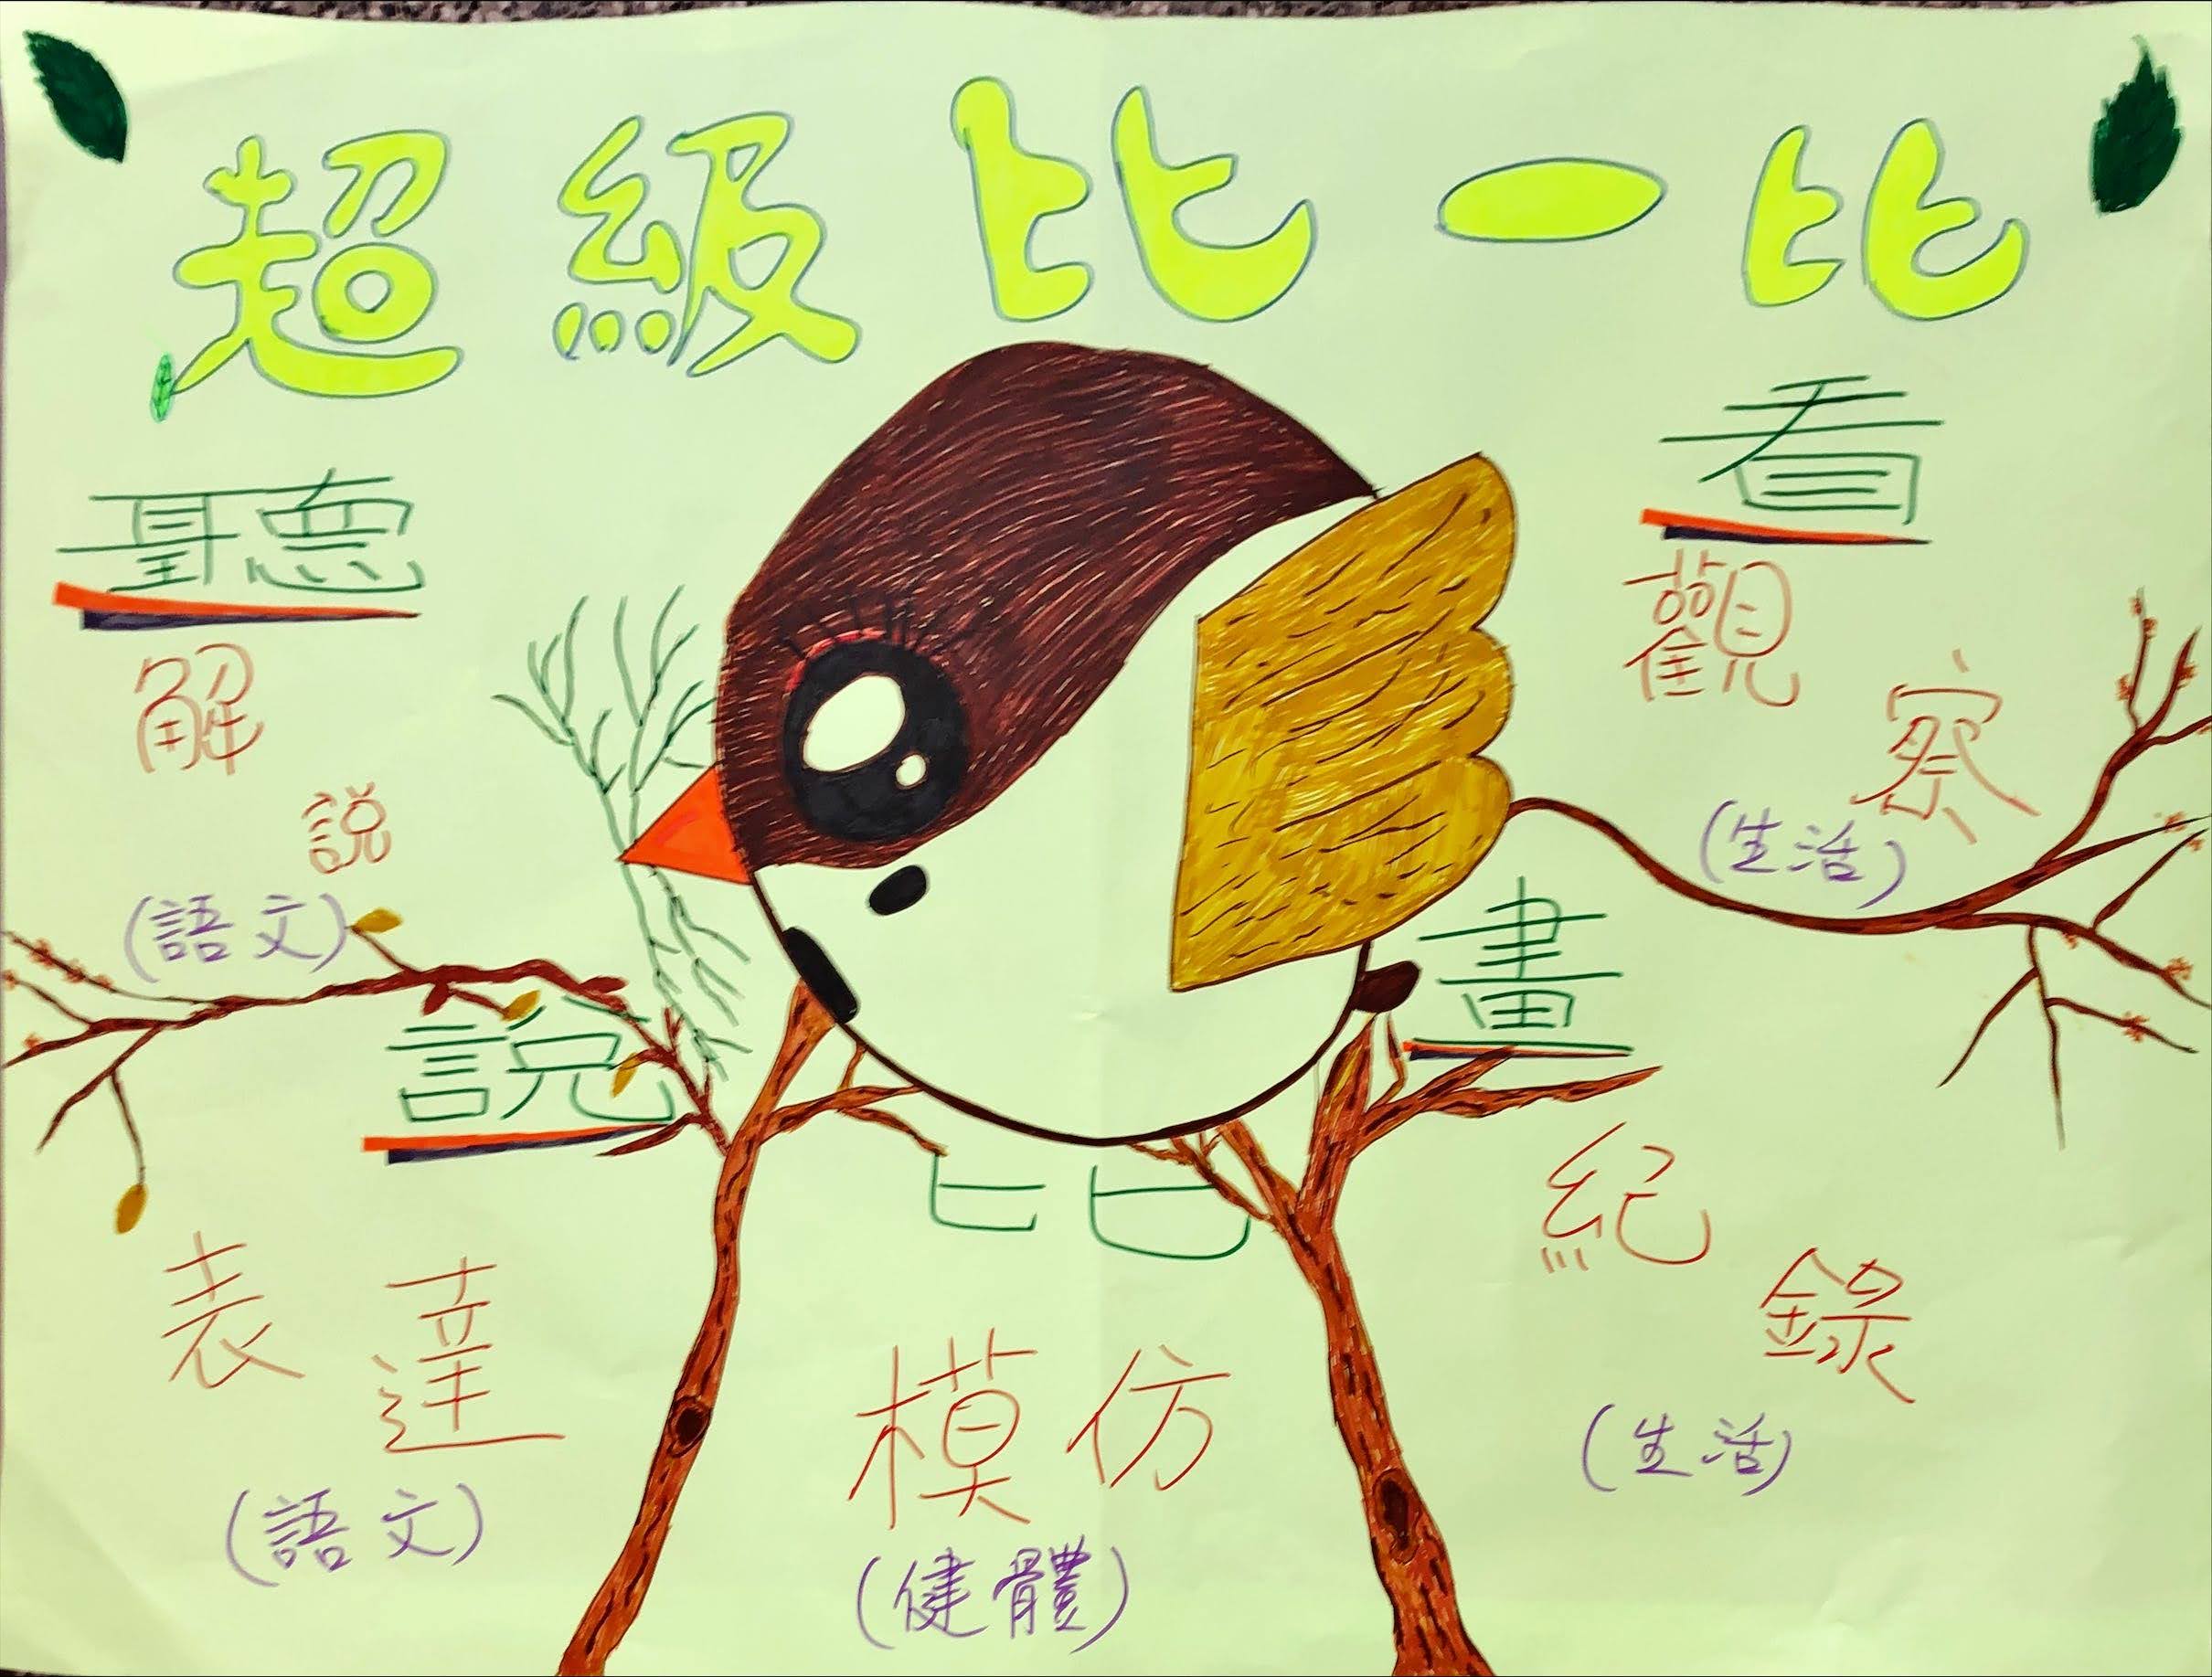 超級比一比
聽
解說
(語文)
說
表達
(語文)
比
模仿
(健體)
看
觀察
(生活)
畫
紀錄
(生活)